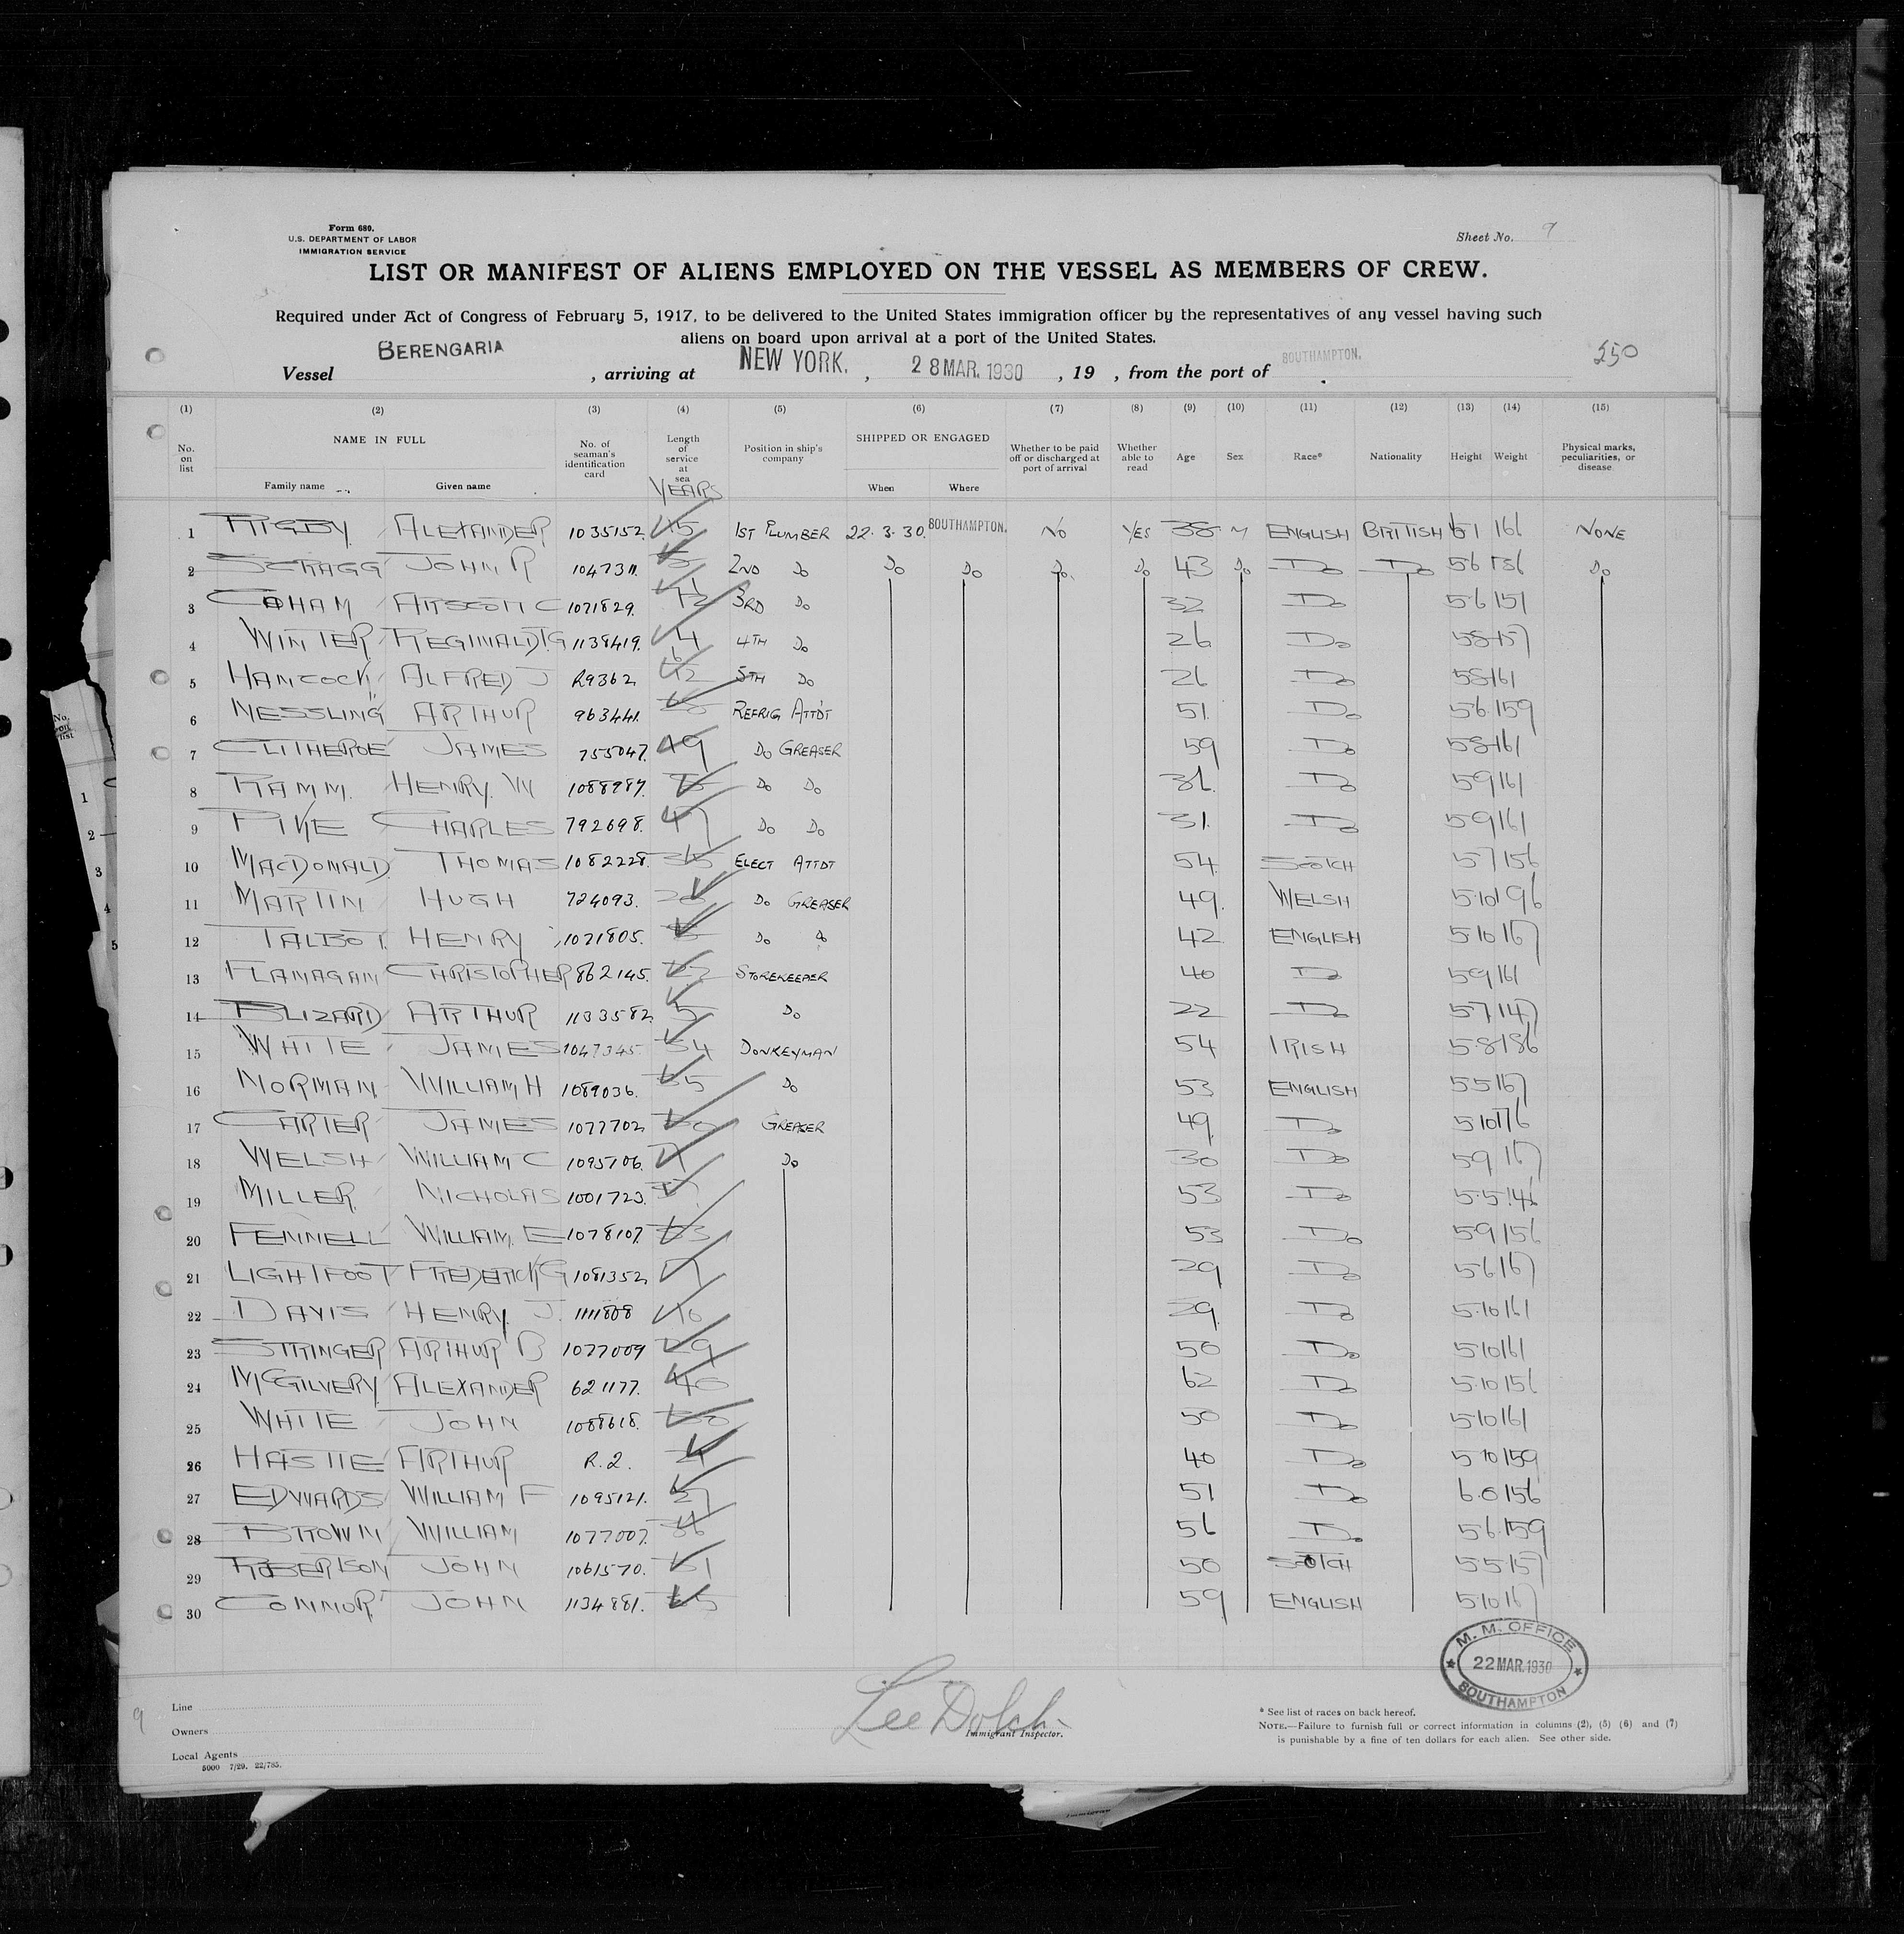 Form 680.
U.S. DEPARTMENT OF LABOR
IMMIGRATION SERVICE
Sheet No. 9
LIST OR MANIFEST OF ALIENS EMPLOYED ON THE VESSEL AS MEMBERS OF CREW.
Required under Act of Congress of February 5, 1917, to be delivered to the United States immigration officer by the representatives of any vessel having such
aliens on board upon arrival at a port of the United States.
Vessel BERENGARIA, arriving at NEW YORK., 28 MAR. 1930, 19 , from the port of SOUTHAMPTON. 250
(1) (2) (3) (4) (5) (6) (7) (8) (9) (10) (11) (12) (13) (14) (15)
No. on list NAME IN FULL Family name Given name No. of seaman's identification card Length of service at sea YEARS Position in ship's company SHIPPED OR ENGAGED When Where Whether to be paid off or discharged at port of arrival Whether able to read Age Sex Race* Nationality Height Weight Physical marks, peculiarities, or disease
1 RIGBY ALEXANDER 1035152 15 1ST PLUMBER 22.3.30. SOUTHAMPTON. NO YES 38 M ENGLISH BRITISH 166 NONE
2 SCRAGG JOHN R 1047311 2ND DO DO DO DO DO 43 DO DO DO 5 6 DO
3 ARSCOTT C 1071829. 12 3RD DO 32 DO 5 6 151
4 WINTER REGINALD T.G 1138419. 4 4TH DO 26 DO 5 8 157
5 HANCOCK ALFRED J R9362 5TH DO 26 DO 5 8 161
6 MESSLING ARTHUR 963441. REFRIG ATTDT 51 DO 5 6 159
7 CLITHEROE JAMES 755047. 49 DO GREASER 59 DO 5 8 161
8 RAMM. HENRY. W 1088987. DO DO DO 5 9 161
9 PIKE CHARLES 792698. DO DO 31. DO 5 9 161
10 MACDONALD THOMAS 1082228. 35 ELECT ATTDT 54 SCOTCH 5 7 156
11 MARTIN HUGH 724093. DO GREASER 49. WELSH 5 10 196
12 TALBOT. HENRY 1071805. DO DO 42 ENGLISH 5 10 167
13 FLANAGAN CHRISTOPHER 862145. STOREKEEPER 40 DO 5 9 161
14 BLIZARD ARTHUR 1133582. 5 DO 22 DO 5 7 147
15 WHITE JAMES 1047345 34 DONKEYMAN 54 IRISH 5 8 186
16 NORMAN WILLIAM H 1089036. DO 53 ENGLISH 5 5 167
17 CARTER JAMES 1077702 GREASER 49. DO 5 10 176
18 WELSH WILLIAM C 1095706. DO 30 DO 5 9 167
19 MILLER NICHOLAS 1001723. 53 DO 5 5
20 FENNELL WILLIAM. E 1078107. 33 53 DO 5 9 156
21 LIGHTFOOT FREDERICK G 1081352 29 DO 5 6 167
22 DAVIS HENRY. J. 1111808 10 29 DO 5 10 161
23 STRINGER ARTHUR B 1077009 29 50 DO 5 10 161
24 MCGILVERY ALEXANDER 621177. 40 62 DO 5 10 156
25 WHITE JOHN 1088618. 50 DO 5 10 161
26 HASTIE ARTHUR R.2. 40 DO 5 10 159
27 EDWARDS WILLIAM F 1095121. 51 DO 6 0 156
28 BROWN WILLIAM 1077007. 36 56 DO 5 6 159
29 ROBERTSON JOHN 1061570. 31 50 SCOTCH 5 5 157
30 CONNOR JOHN 1134881. 59 ENGLISH 5 10 167
M. M. OFFICE
22 MAR. 1930
SOUTHAMPTON
Line
Owners
Local Agents
5000 7/29. 22/785.
9
Lee Dolch
Immigrant Inspector.
* See list of races on back hereof.
NOTE.—Failure to furnish full or correct information in columns (2), (5) (6) and (7)
is punishable by a fine of ten dollars for each alien. See other side.